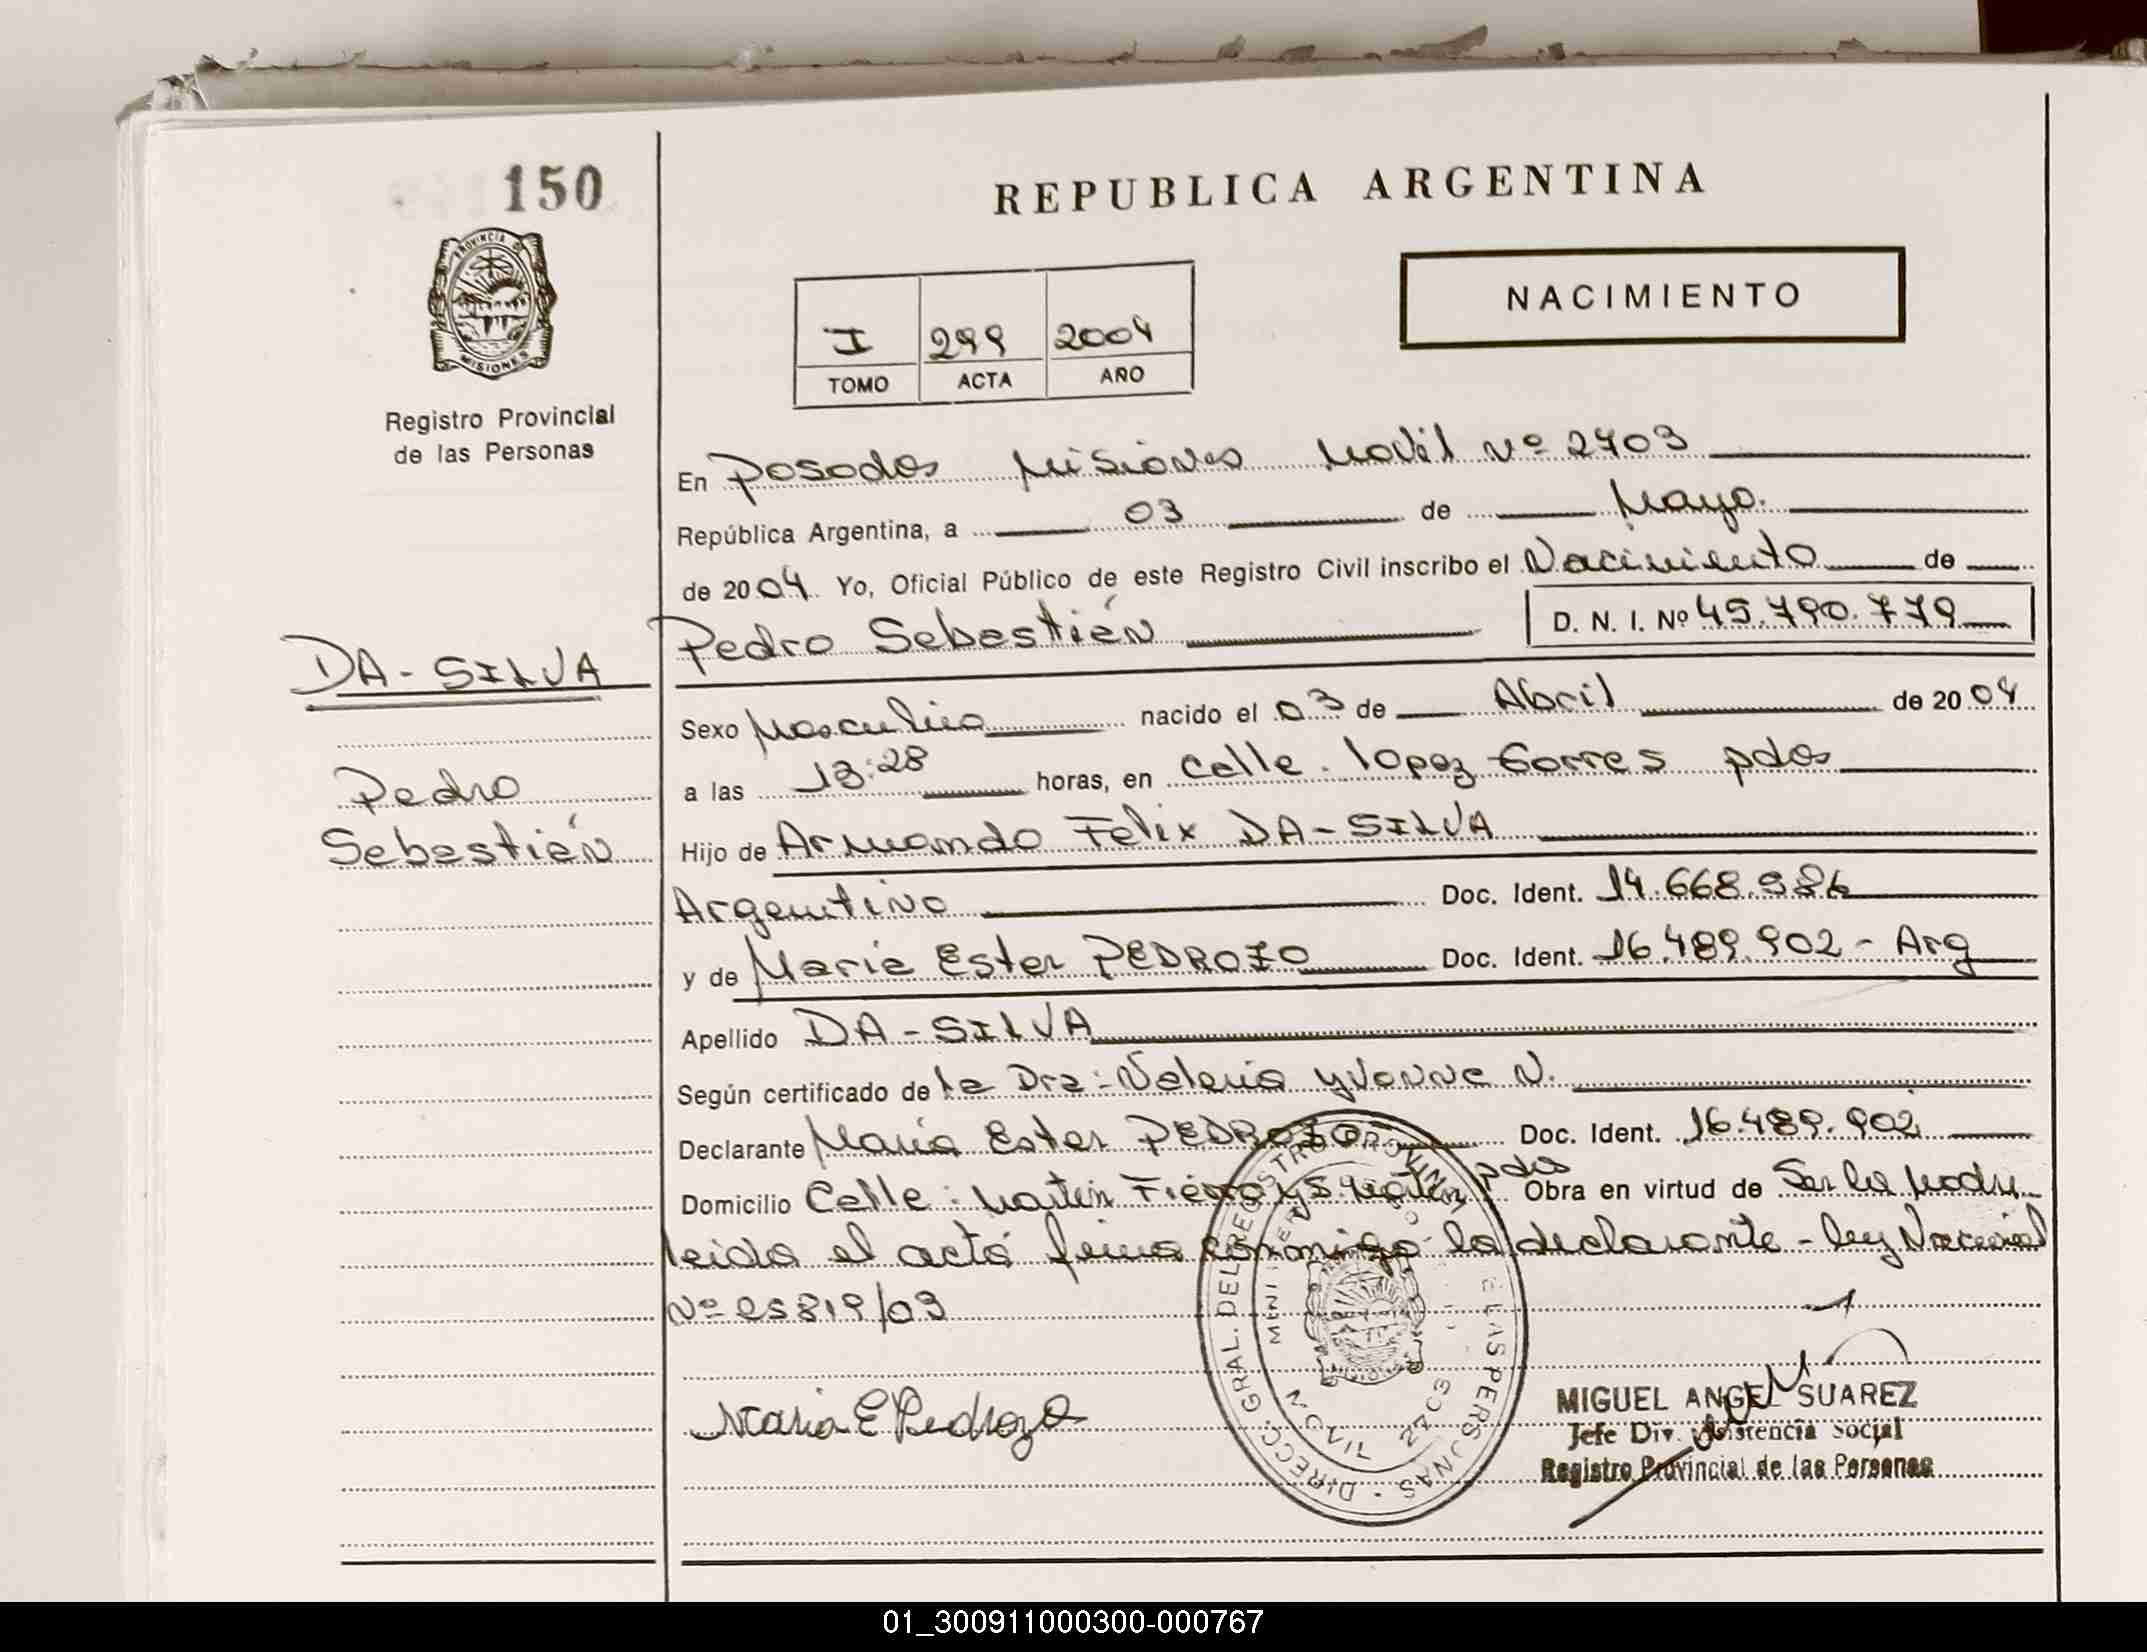 150
REPUBLICA ARGENTINA
PROVINCIA DE
MISIONES
Registro Provincial
de las Personas
NACIMIENTO
I 299 2004
TOMO ACTA AÑO
En Posadas Misiones Movil Nº 2703
República Argentina, a 03 de Mayo.
de 2004. Yo, Oficial Público de este Registro Civil inscribo el Nacimiento de
DA-SILVA
Pedro Sebastián D. N. I. Nº 45.790.779
Sexo Masculino nacido el 03 de Abril de 2004
Pedro
Sebastián
a las 13:28 horas, en Calle. lopez Torres pdas
Hijo de Armando Felix DA-SILVA
Argentino Doc. Ident. 14.668.986
y de Maria Ester PEDROZO Doc. Ident. 16.489.902 - Arg
Apellido DA-SILVA
Según certificado de la Dra: Valeria yvonne N.
Declarante María Ester PEDROZO Doc. Ident. 16.489.902
Domicilio Calle: Martin Fierro y S. Martin pdas Obra en virtud de Ser la Madre
leida el acta firma conmigo la declarante - ley Nacional
Nº 25819/03
Maria E Pedrozo
DIRECC. GRAL. DEL REGISTRO PROVINCIAL DE LAS PERSONAS
MOVIL Nº 2703
MIGUEL ANGEL SUAREZ
Jefe Div. Asistencia Social
Registro Provincial de las Personas
01_300911000300-000767